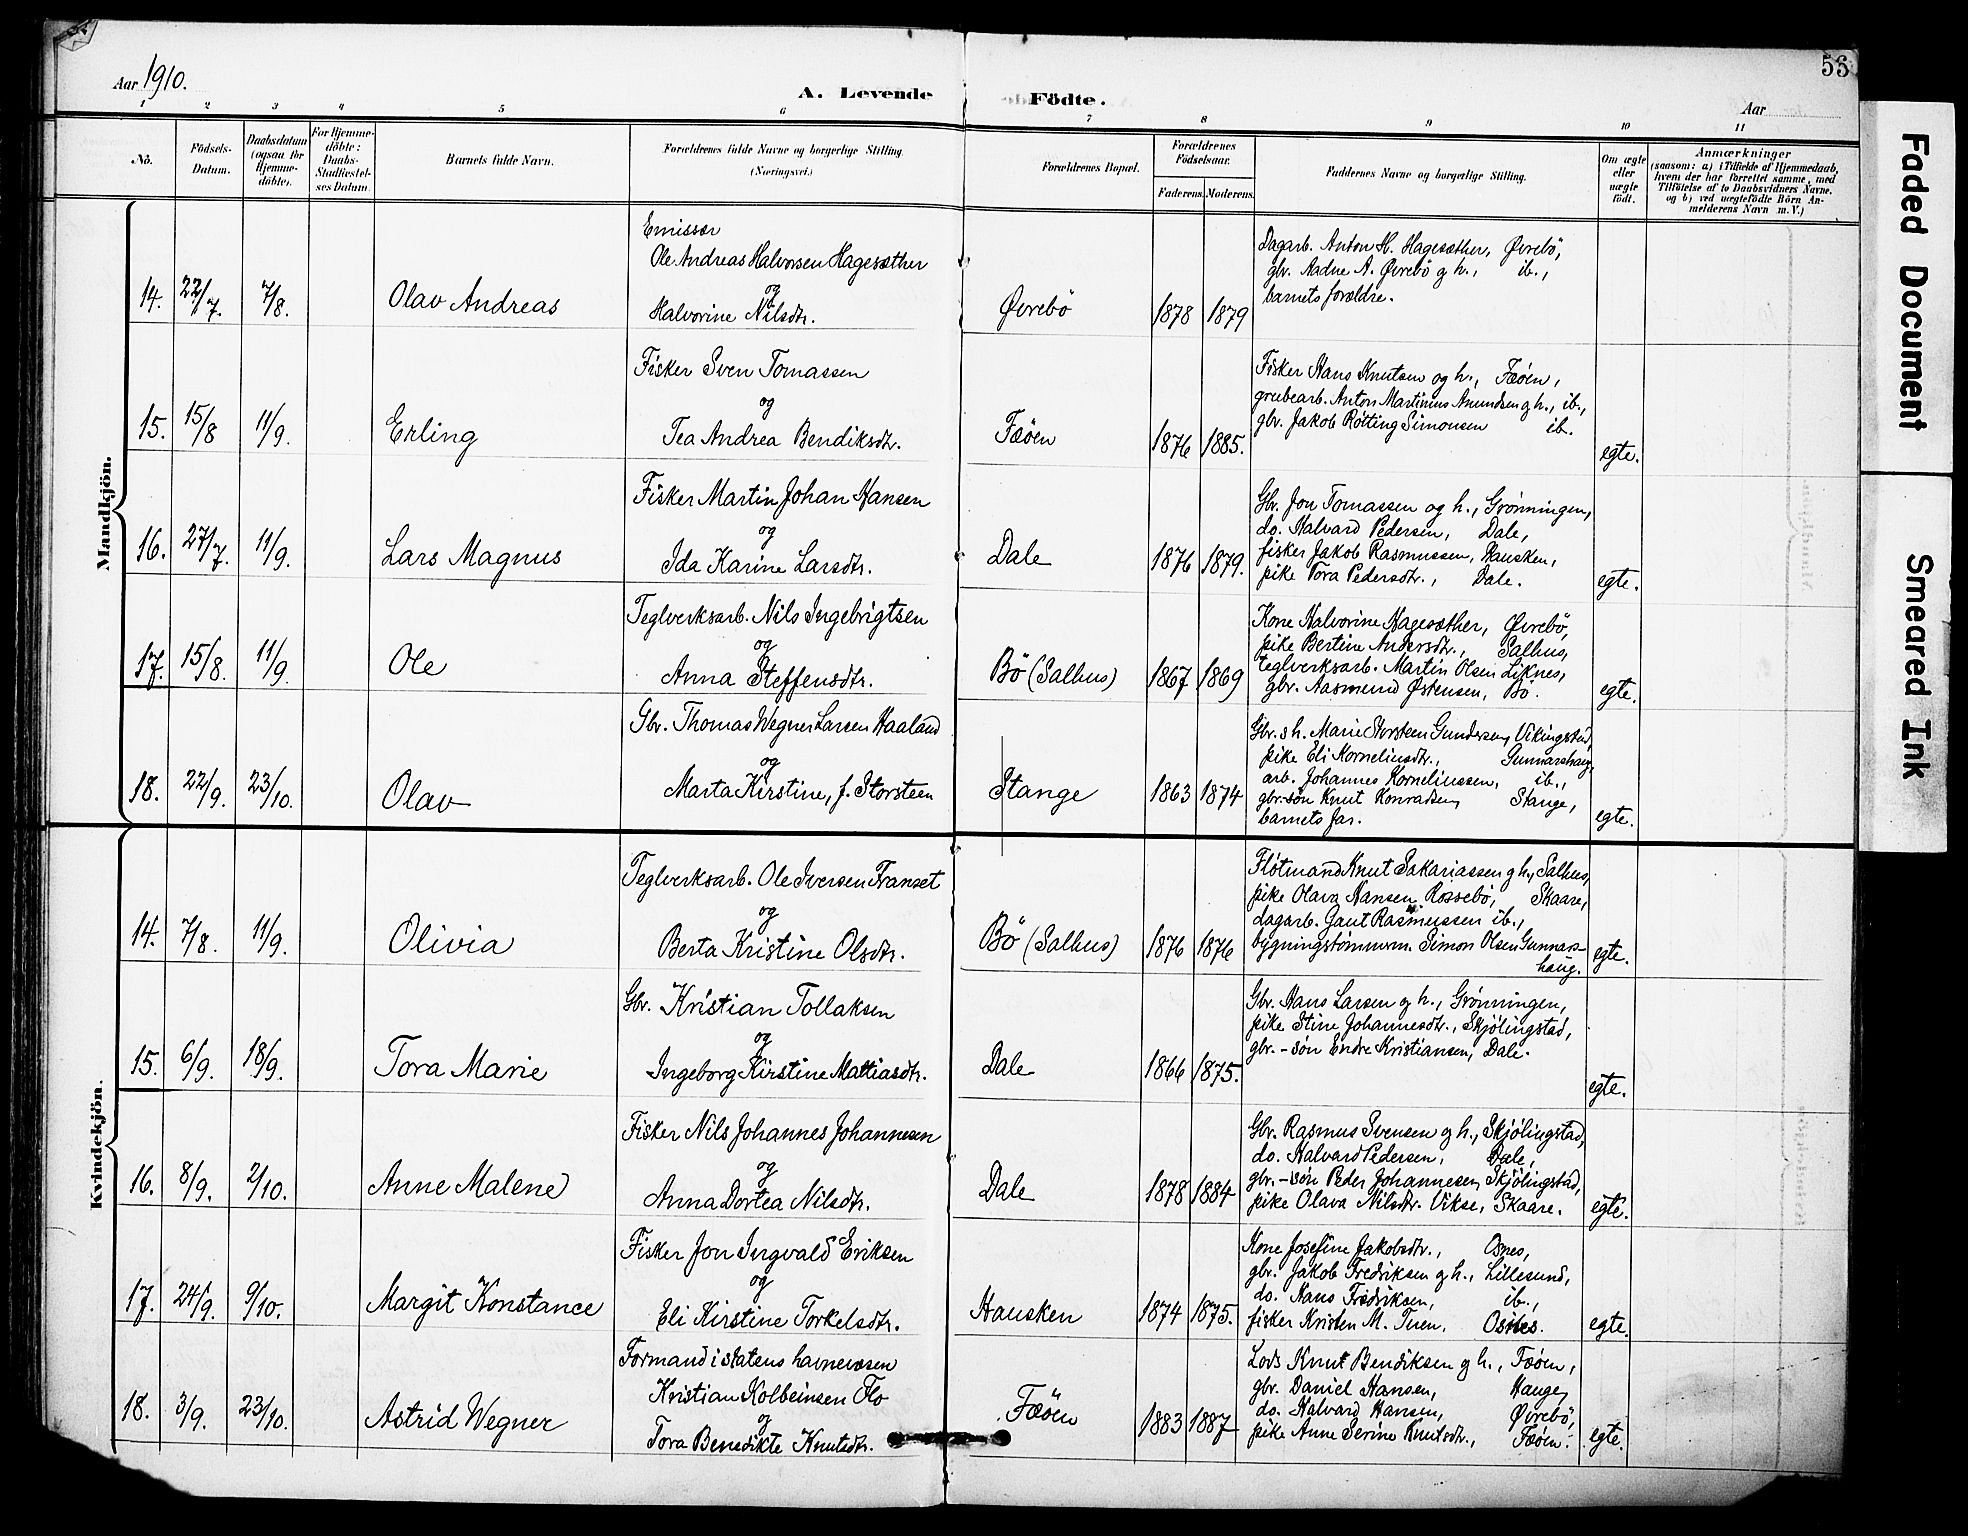 56
Aar 1910.
A. Levende Födte.
Aar
1 2 3 4 5 6 7 8 9 10 11
No.
Födsels-Datum.
Daabsdatum (ogsaa for Hjemme-döbte).
For Hjemme-döbte: Daabs-Stadfæstel-ses Datum.
Barnets fulde Navn.
Forældrenes fulde Navne og borgerlige Stilling. (Næringsvei.)
Forældrenes Bopæl.
Forældrenes Födselsaar.
Faderens. Moderens.
Faddernes Navne og borgerlige Stilling.
Om ægte eller uægte födt.
Anmærkninger
(saasom: a) i Tilfælde af Hjemmedaab, hvem der har forrettet samme, med Tilföielse af to Daabsvidners Navne. og b) ved uægtefödte Börn An-melderens Navn m. V.)
Mandkjön.
14. 22/7. 7/8. Olav Andreas
Emissær
Ole Andreas Halvorsen Hagesæther
og
Halvorine Nilsdtr.
Øvrebö 1878 1879
Dagarb. Anton H. Hagesæther, Øvrebö,
gbr. Aadne A. Øvrebö og h., ib.,
barnets forældre.
15. 15/8 11/9. Erling
Fisker Sven Tomassen
og
Tea Andrea Bendiksdtr.
Fæöen 1876 1885.
Fisker Hans Knutsen og h., Fæöen,
grubearb. Anton Martinius Amundsen og h., ib.,
gbr. Jakob Røtting Simonsen ib.
egte.
16. 27/7. 11/9. Lars Magnus
Fisker Martin Johan Hansen
og
Ida Karine Larsdtr.
Dale 1876 1879.
Gbr. Jon Tomassen og h., Grönningen,
do. Halvard Pedersen, Dale,
fisker Jakob Rasmussen, Hausken,
pike Tora Pedersdtr., Dale.
egte.
17. 15/8. 11/9. Ole
Teglverksarb. Nils Ingebrigtsen
og
Anna Steffensdtr.
Bö (Salhus) 1867 1869
Kone Halvorine Hagesæther, Øvrebö,
pike Bertine Andersdtr., Salhus,
teglverksarb. Martin Olsen Liknes,
gbr. Aasmund Østensen, Bö.
egte.
18. 22/9. 23/10. Olav
Gbr. Thomas Wegner Larsen Haaland
og
Marta Kirstine, f. Storsteen
Stange 1863 1874
Gbr.s h. Marie Storsteen Gundersen, Vikingstad,
pike Eli Kornelinsdtr., Gunnarshaug,
arb. Johannes Korneliussen, ib.,
gbr.-søn Knut Konradsen, Stange,
barnets far.
egte.
Kvindekjön.
14. 7/8. 11/9. Olivia
Teglverksarb. Ole Iversen Franset
og
Berta Kristine Olsdtr.
Bö (Salhus) 1876 1876
Fløtmand Knut Sakariassen og h., Salhus,
pike Olava Hansen Rossebö, Skaare,
dagarb. Gaut Rasmussen ib.,
bygningstömmerm. Simon Olsen Gunnars-
haug.
egte.
15. 6/9. 18/9. Tora Marie
Gbr. Kristian Tollaksen
og
Ingeborg Kirstine Mattiasdtr.
Dale 1866 1875.
Gbr. Hans Larsen og h., Grönningen,
pike Stine Johannesdtr., Skjölingstad,
gbr.-søn Endre Kristiansen, Dale.
egte.
16. 8/9. 2/10. Anne Malene
Fisker Nils Johannes Johannesen
og
Anna Dortea Nilsdtr.
Dale 1878 1884
Gbr. Rasmus Svensen og h., Skjölingstad,
do. Halvard Pedersen, Dale,
gbr.-søn Peder Johannesen, Skjölingstad,
pike Olava Nilsdtr. Vikse, Skaare.
egte.
17. 24/9. 9/10. Margit Konstance
Fisker Jon Ingvald Eriksen
og
Eli Kirstine Torkelsdtr.
Hausken 1874 1875.
Kone Josefine Jakobsdtr., Osnes,
gbr. Jakob Fredriksen og h., Lillesund,
do. Hans Fredriksen, ib.,
fisker Kristen M. Osnes.
egte.
18. 3/9. 23/10. Astrid Wegner
Formand i statens havnevæsen
Kristian Kolbeinsen Flo
og
Tora Benedikte Knutsdtr.
Fæöen 1883 1887
Lods Knut Bendiksen og h., Fæöen,
gbr. Daniel Hansen, Hauge,
do. Halvard Hansen, Øvrebö,
pike Anne Serine Knutsdtr., Fæöen.
egte.
Faded Document
Smeared Ink